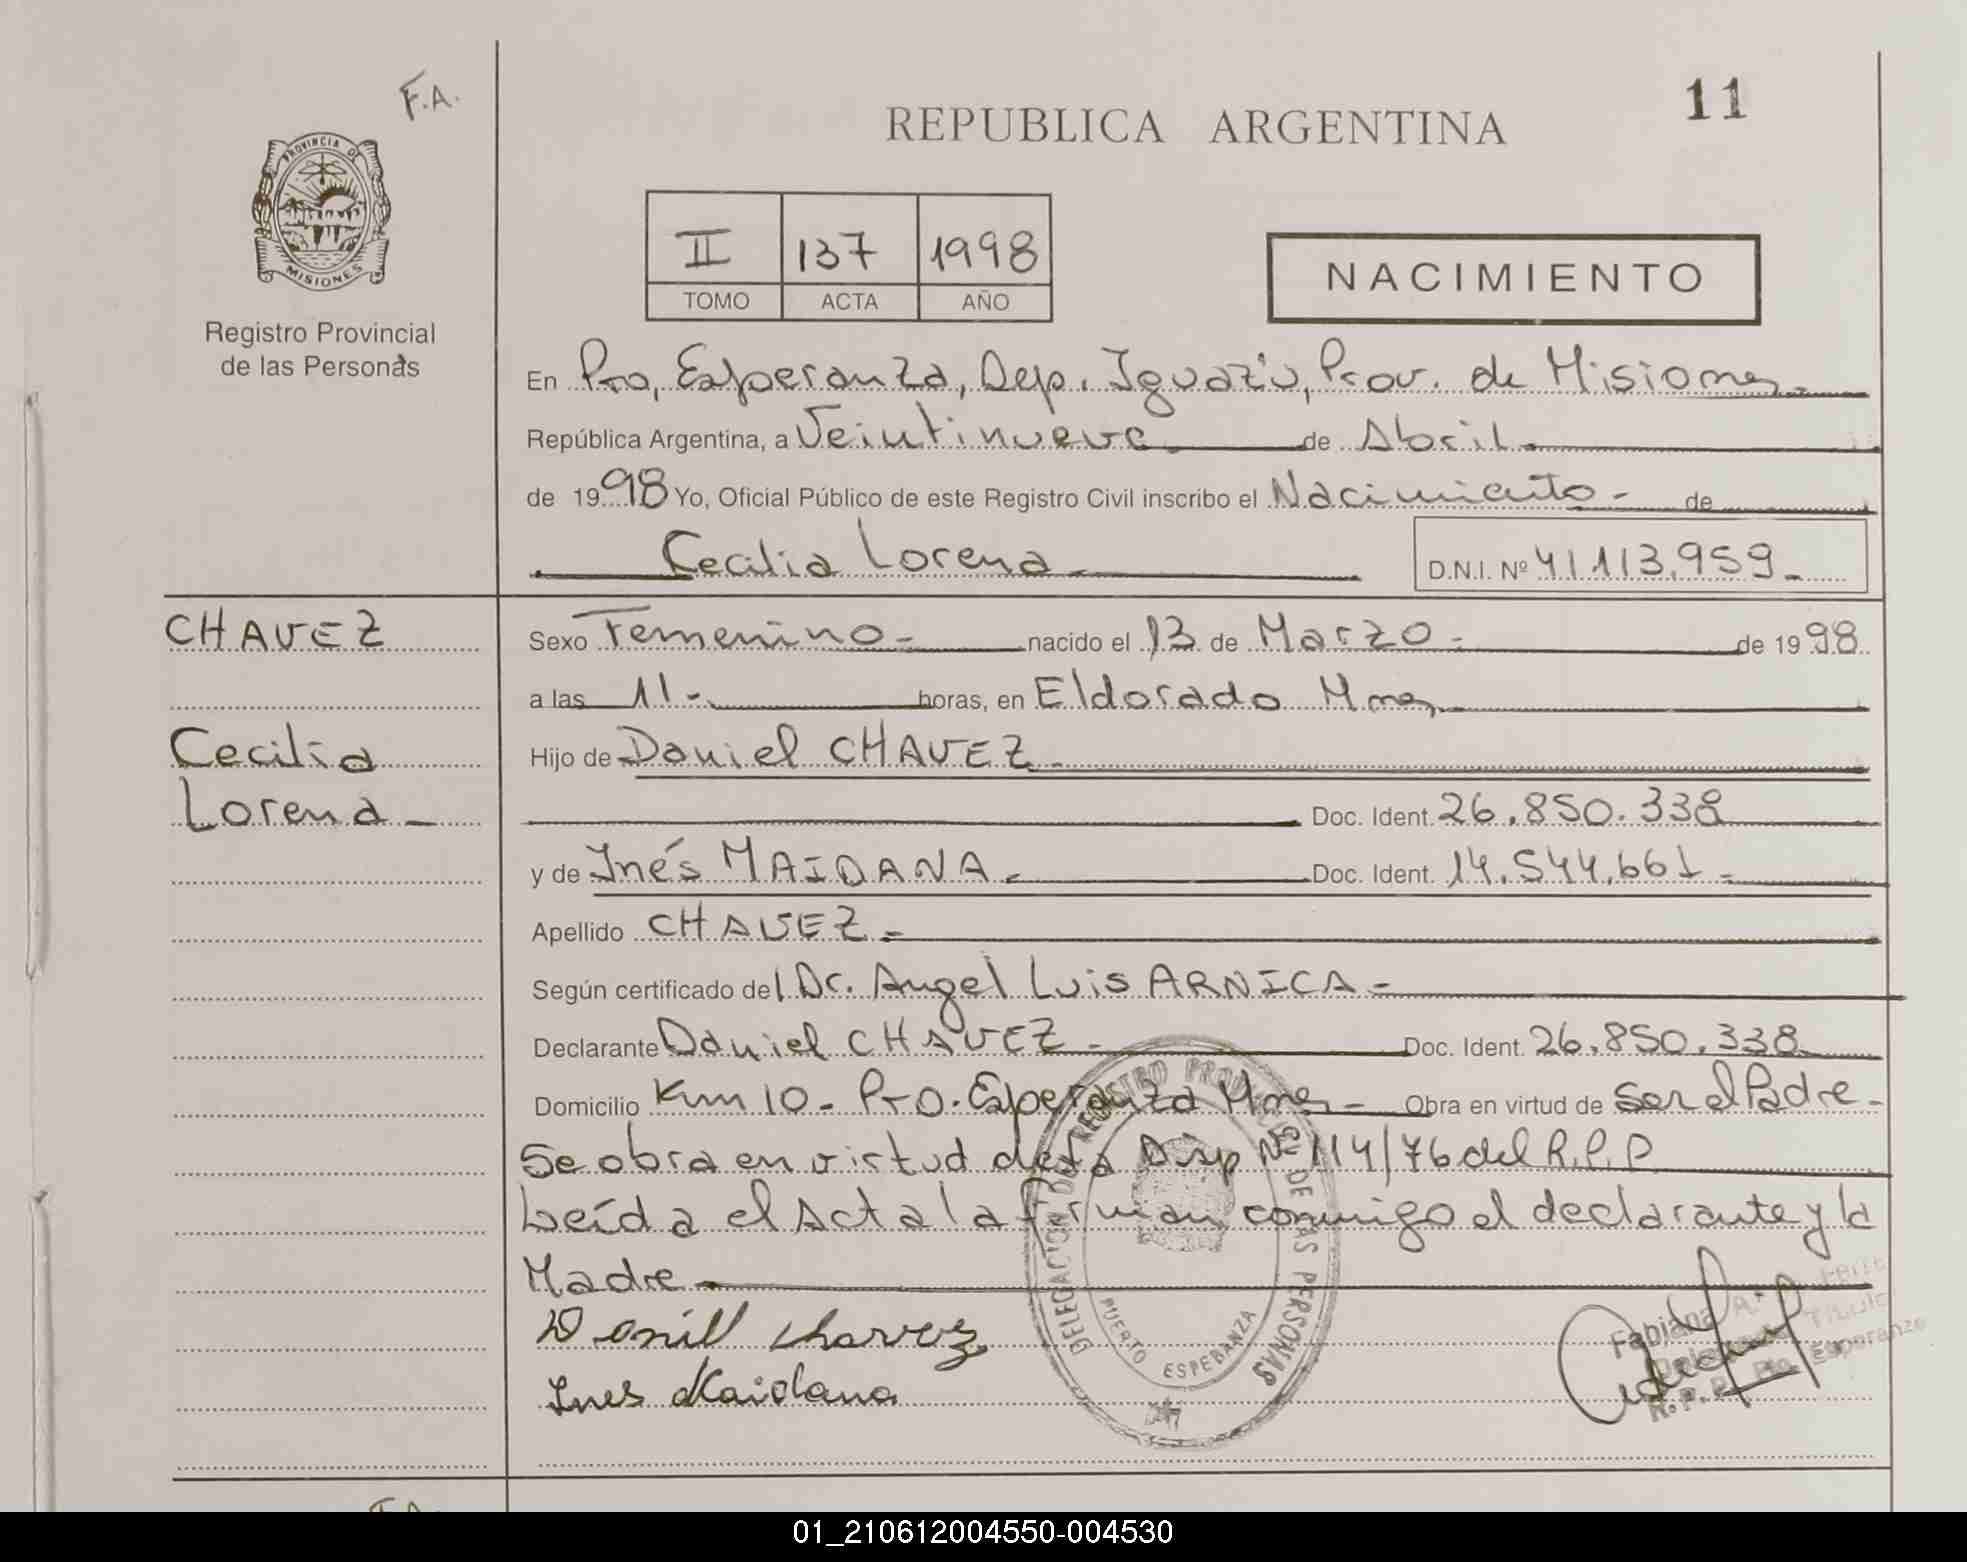 F.A.
11
REPUBLICA ARGENTINA
PROVINCIA DE
MISIONES
Registro Provincial
de las Personas
II 137 1998
TOMO ACTA AÑO
NACIMIENTO
En Pto, Esperanza, Dep. Iguazú, Prov. de Misiones.-
República Argentina, a Veintinueve de Abril.-
de 1998 Yo, Oficial Público de este Registro Civil inscribo el Nacimiento - de
Cecilia Lorena.- D.N.I. Nº 41113.959-
CHAVEZ
Cecilia
Lorena -
Sexo Femenino.- nacido el 13 de Marzo.- de 1998
a las 11.- horas, en Eldorado Mnes.-
Hijo de Daniel CHAVEZ.-
Doc. Ident. 26.850.338
y de Inés MAIDANA.- Doc. Ident. 14.544.661.-
Apellido CHAVEZ.-
Según certificado del Dr. Angel Luis ARNICA.-
Declarante Daniel CHAVEZ.- Doc. Ident. 26.850.338
Domicilio Km 10 - Pto. Esperanza Mnes.- Obra en virtud de Ser el Padre.-
Se obra en virtud de la Disp Nº 114/76 del R.P.P.
Leída el Acta la firman conmigo el declarante y la
Madre.-
Daniel Chavez
Ines Maidana
DELEGACION DEL REGISTRO PROVINCIAL DE LAS PERSONAS
PUERTO ESPERANZA
Fabiana A.
Titular
R. P. P. Pto. Esperanza
F.A.
01_210612004550-004530